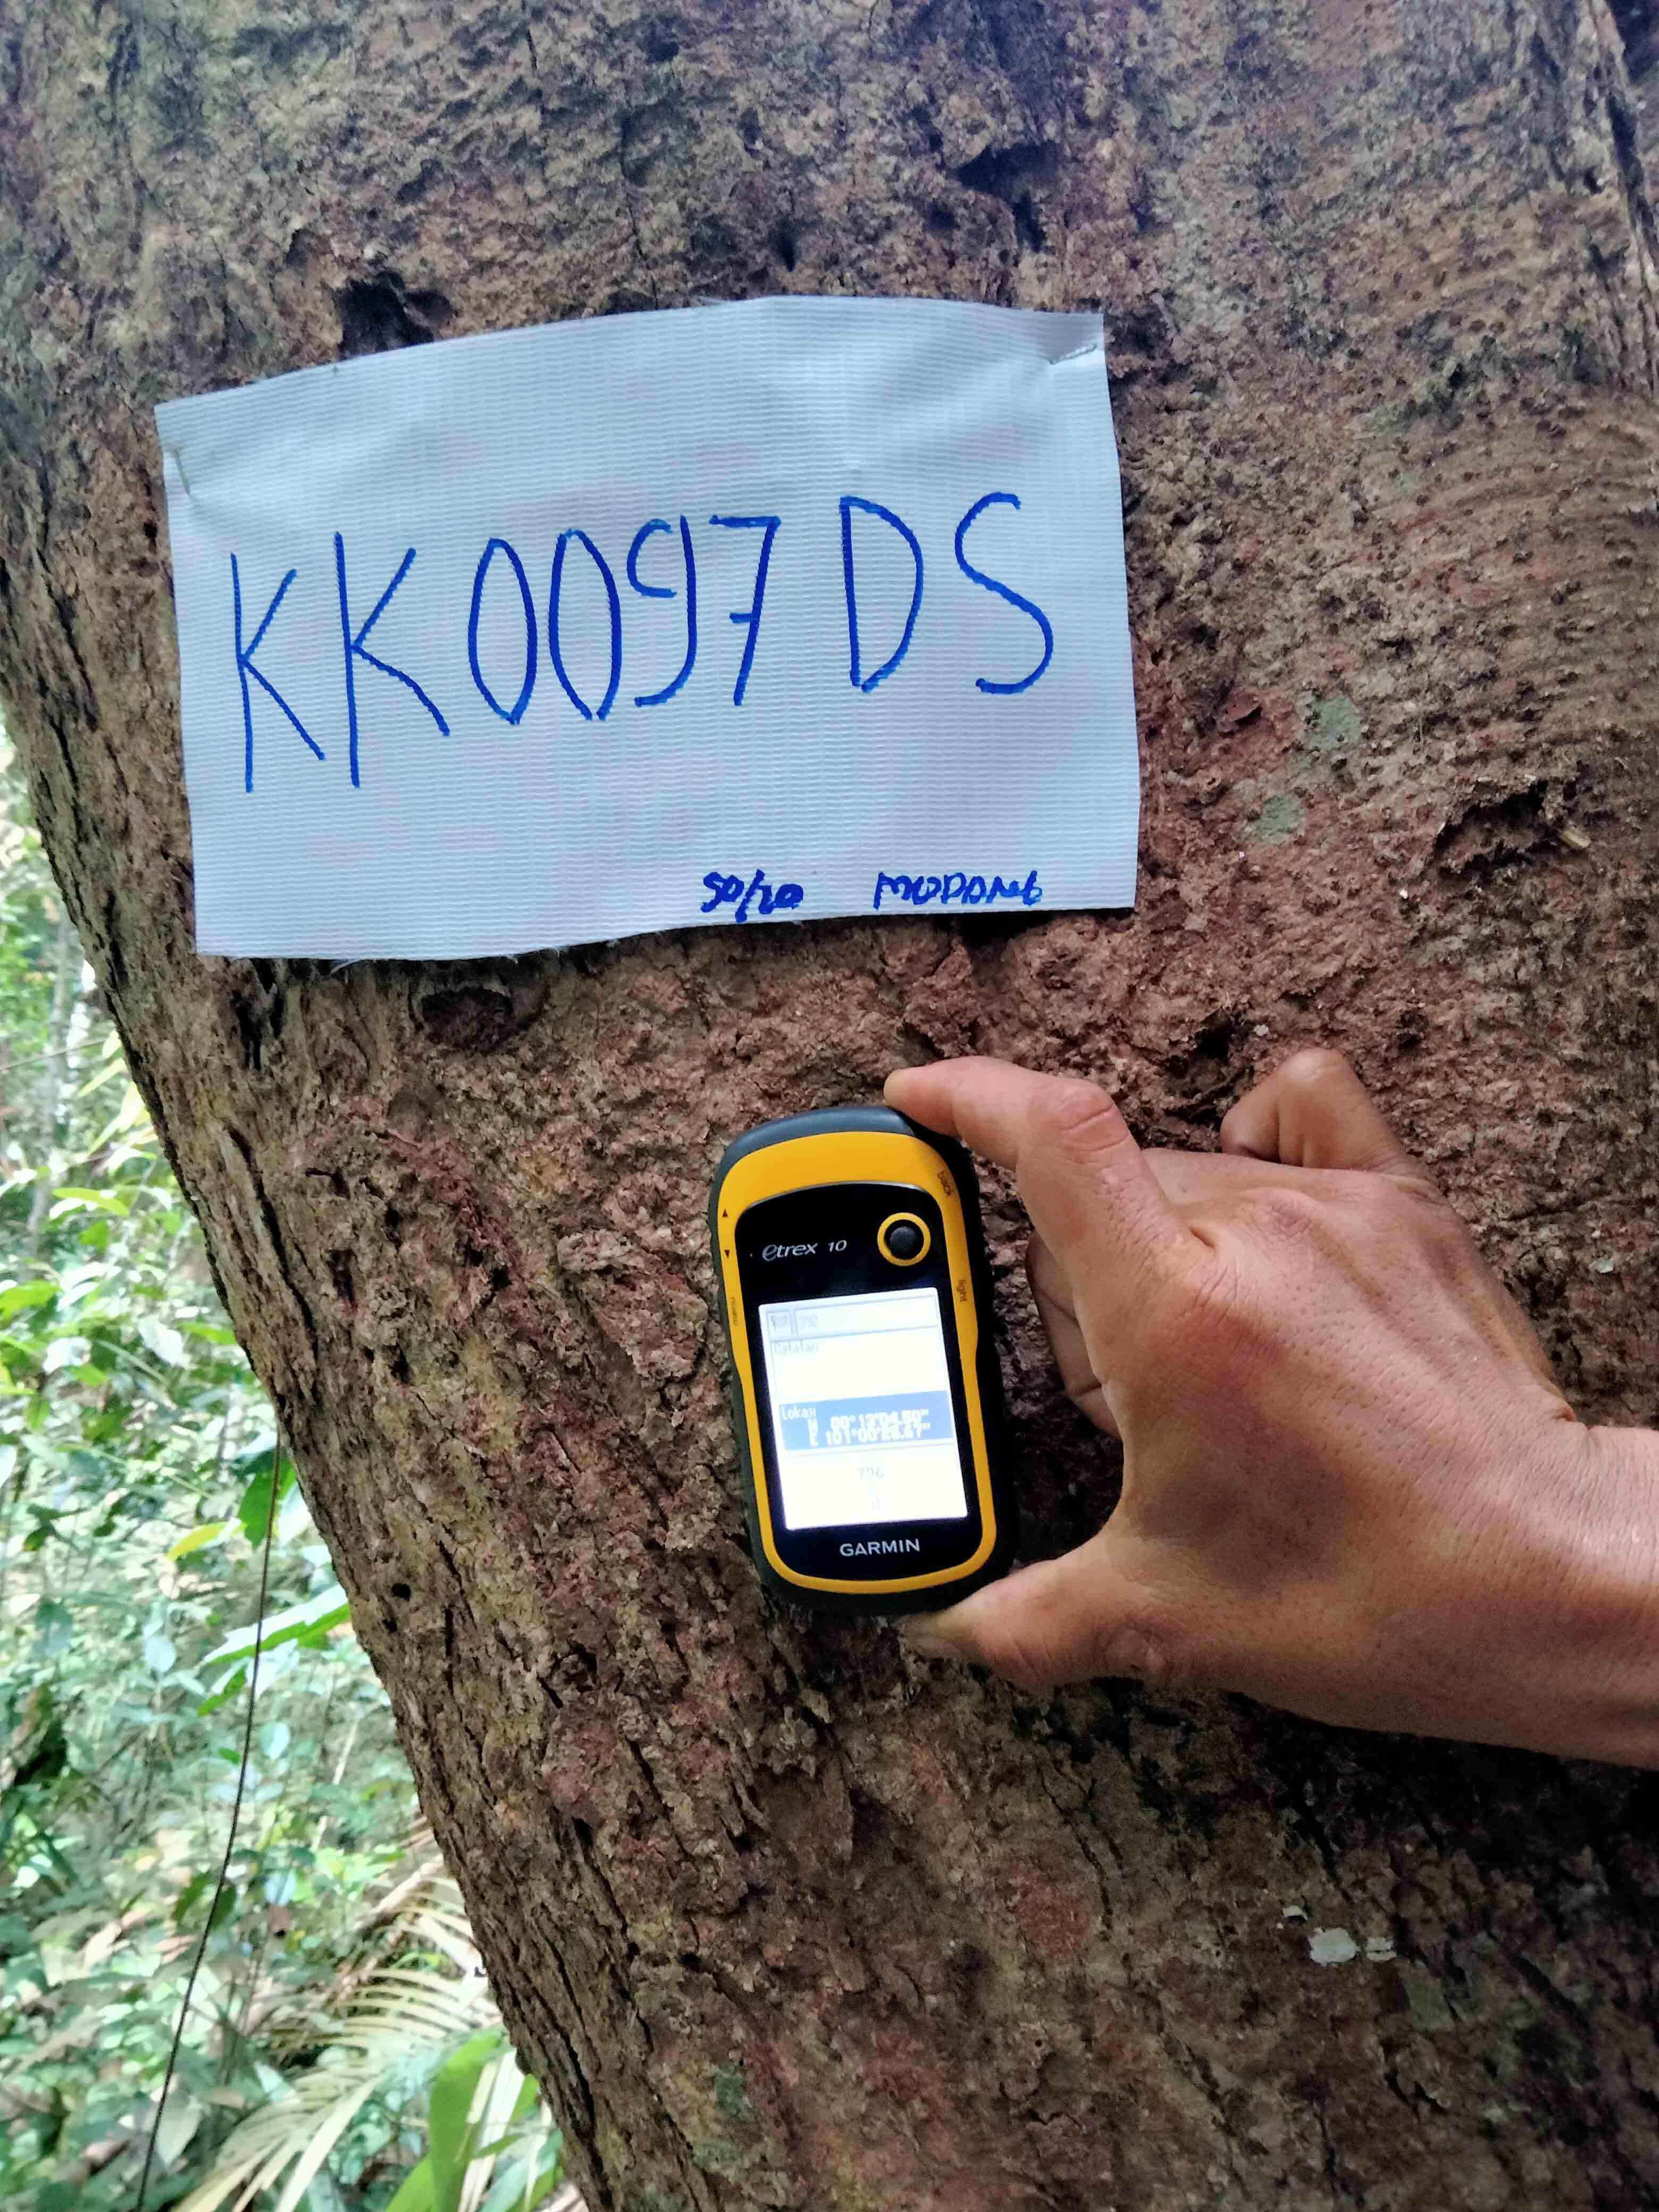 KK0097 DS
50/20 MODANG
back
etrex 10
light
menu
Catatan
Lokasi
N 00°13'04.90"
E 101°00'28.67"
GARMIN